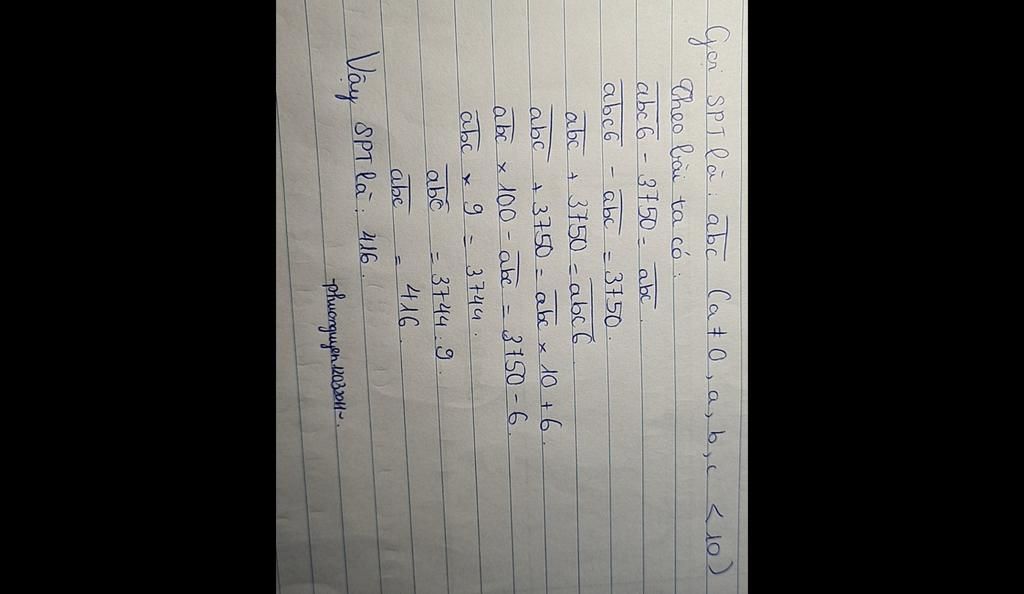 Gọi SPT là: abc (a ≠ 0, a, b, c < 10)
Theo bài ta có:
abc6 - 3750 = abc.
abc6 - abc = 3750.
abc + 3750 = abc6.
abc + 3750 = abc × 10 + 6.
abc × 100 - abc = 3750 - 6.
abc × 9 = 3744.
abc = 3744 : 9.
abc = 416.
Vậy SPT là: 416.